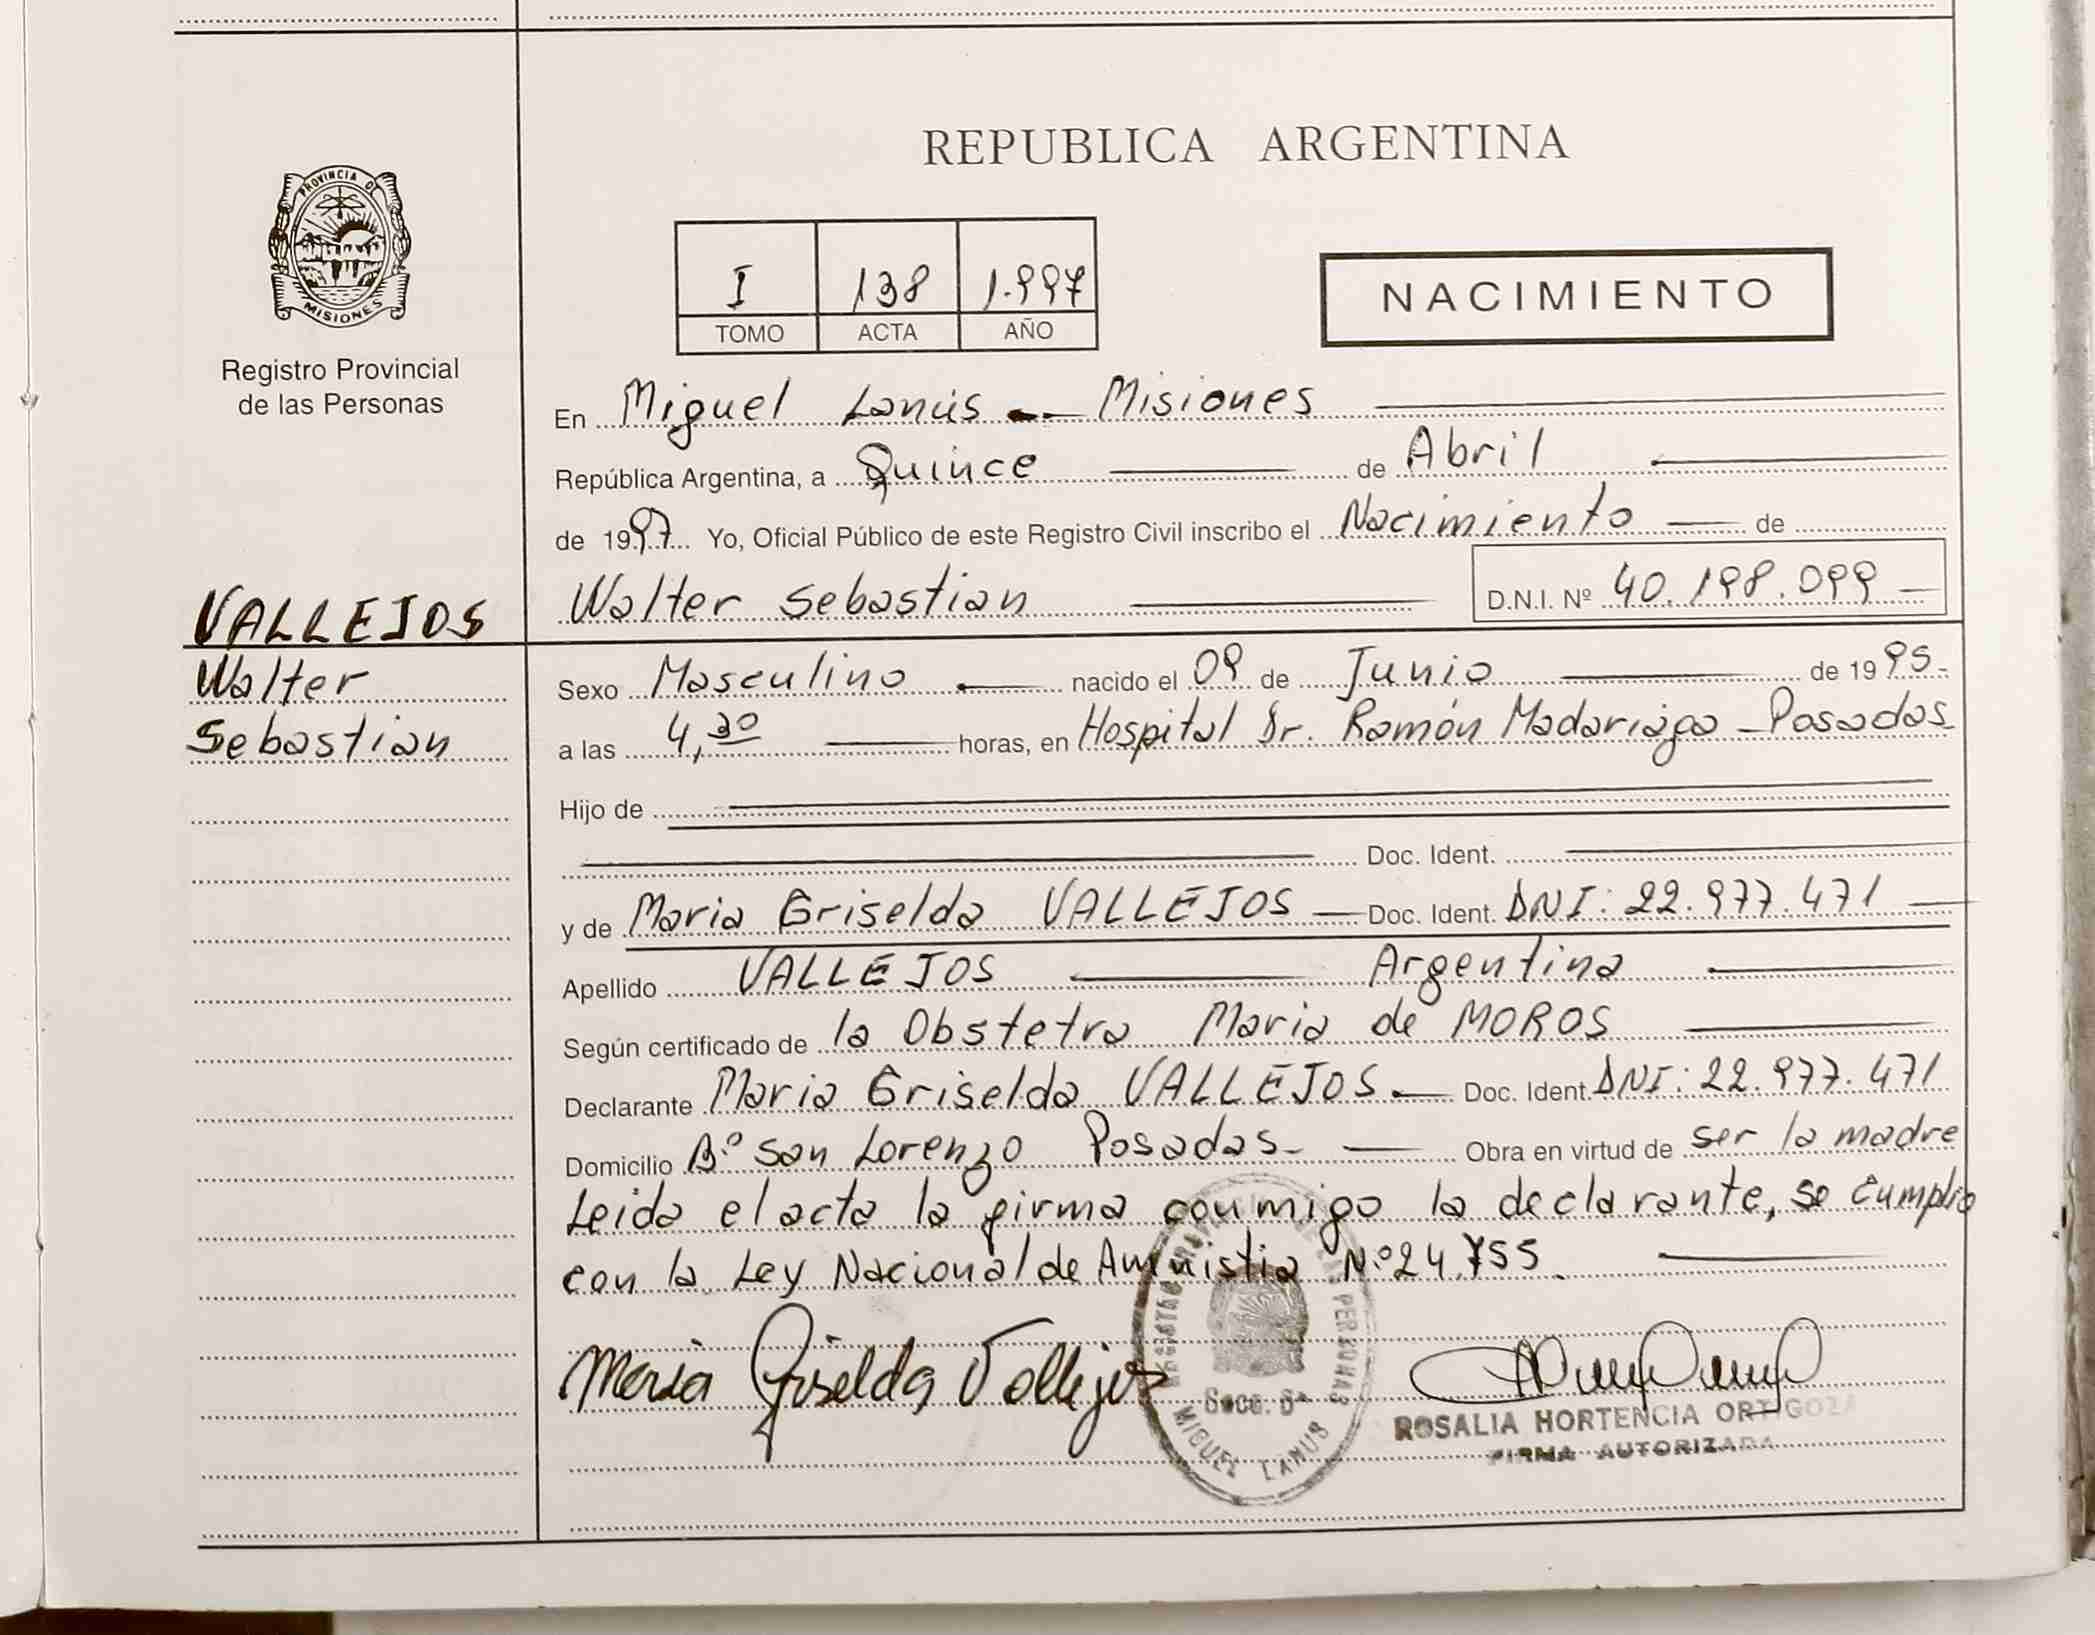 PROVINCIA DE
MISIONES
Registro Provincial
de las Personas
VALLEJOS
Walter
Sebastian
REPUBLICA ARGENTINA
I 138 1.997
TOMO ACTA AÑO
NACIMIENTO
En Miguel Lanús -- Misiones
República Argentina, a Quince de Abril
de 1997 Yo, Oficial Público de este Registro Civil inscribo el Nacimiento de
Walter Sebastian D.N.I. Nº 40.198.099
Sexo Masculino nacido el 09 de Junio de 1995.
a las 4,30 horas, en Hospital Dr. Ramón Madariaga - Posadas
Hijo de
Doc. Ident.
y de Maria Griselda VALLEJOS Doc. Ident. DNI: 22.977.471
Apellido VALLEJOS Argentina
Según certificado de la Obstetra Maria de MOROS
Declarante Maria Griselda VALLEJOS. Doc. Ident. DNI: 22.977.471
Domicilio Bº San Lorenzo Posadas- Obra en virtud de ser la madre
Leida el acta la firma conmigo la declarante, se cumplio
con la Ley Nacional de Amnistia Nº 24.755.
Maria Griselda Vallejos
Secc. 5ª
MIGUEL LANUS
ROSALIA HORTENCIA ORTIGOZA
FIRMA AUTORIZADA